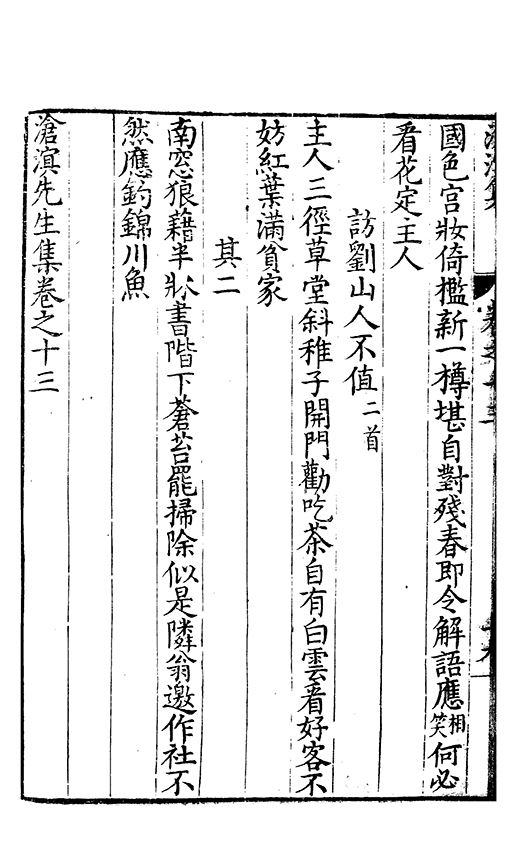 國色宮妝倚檻新一樽堪自對殘春即令解語應相笑何必
看花定主人
訪劉山人不值二首
主人三徑草堂斜稚子開門勸吃茶自有白雲看好客不
妨紅葉滿貧家
其二
南窓狼藉半牀書階下蒼苔罷掃除似是隣翁邀作社不
然應釣錦川魚
滄溟先生集卷之十三